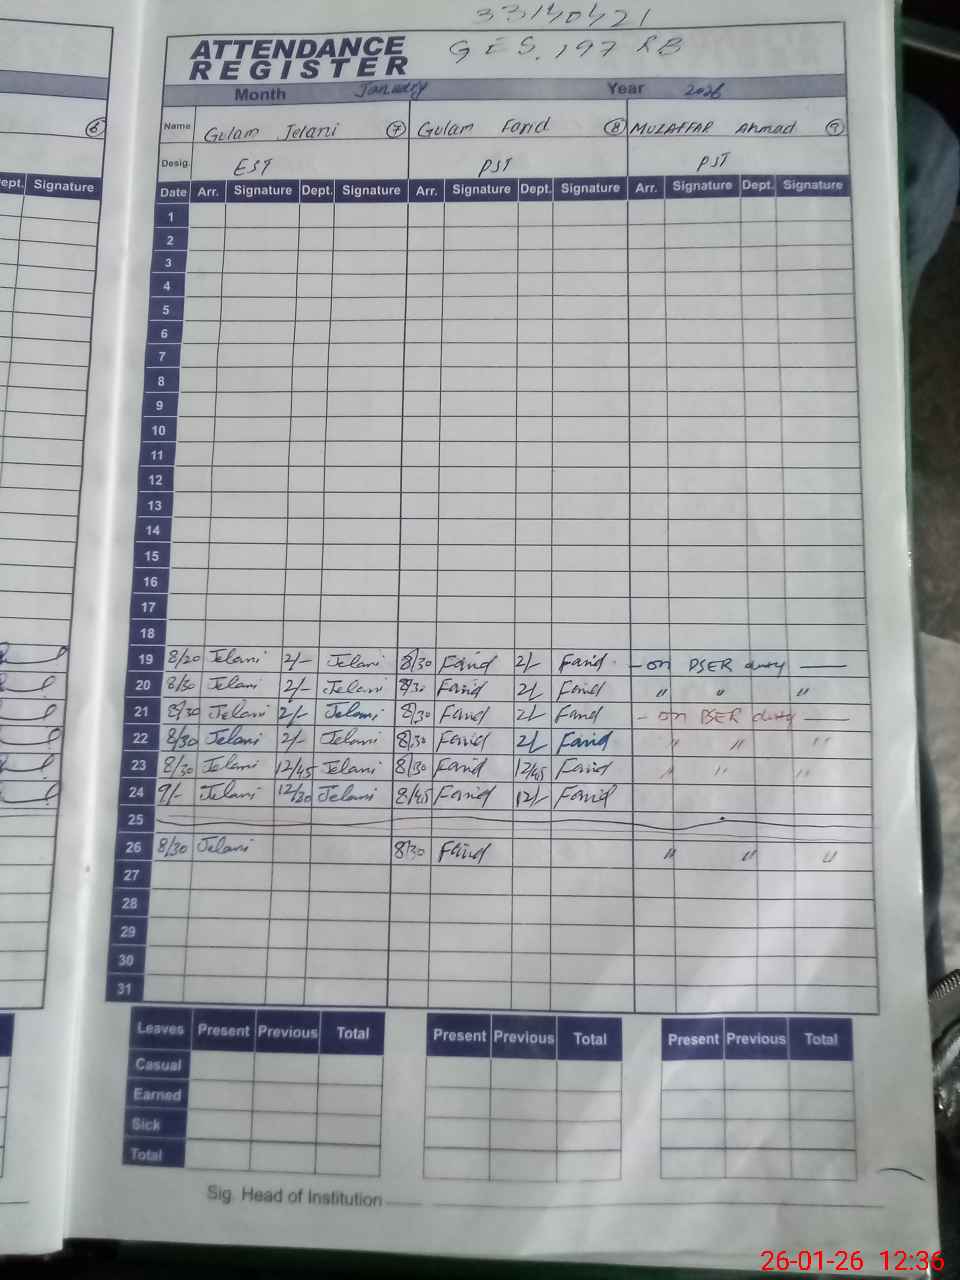 33140421
ATTENDANCE REGISTER GES. 197 RB
Month January Year 2026
6
Name Gulam Jelani 7 Gulam Farid 8 Muzaffar Ahmad 9
Desig. EST PST PST
ept. Signature
Date Arr. Signature Dept. Signature Arr. Signature Dept. Signature Arr. Signature Dept. Signature
1
2
3
4
5
6
7
8
9
10
11
12
13
14
15
16
17
18
19 8/20 Jelani 2/- Jelani 8/30 Farid 2/- Farid - on PSER duty -
20 8/30 Jelani 2/- Jelani 8/30 Farid 2/- Farid " " "
21 8/30 Jelani 2/- Jelani 8/30 Farid 2/- Farid - on PSER duty -
22 8/30 Jelani 2/- Jelani 8/30 Farid 2/- Farid " " "
23 8/30 Jelani 12/45 Jelani 8/30 Farid 12/45 Farid " " "
24 9/- Jelani 12/30 Jelani 8/45 Farid 12/- Farid
25
26 8/30 Jelani 8/30 Farid " " "
27
28
29
30
31
Leaves Present Previous Total Present Previous Total Present Previous Total
Casual
Earned
Sick
Total
Sig. Head of Institution
26-01-26 12:36